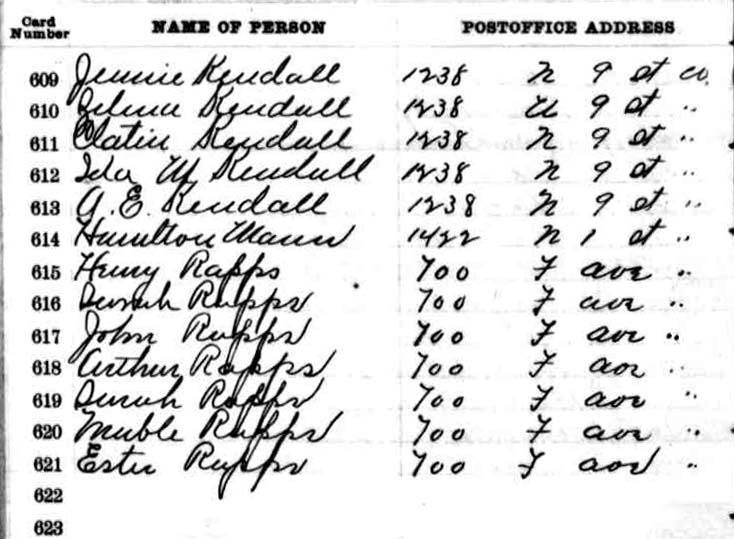 Card Number NAME OF PERSON POSTOFFICE ADDRESS
609 Jennie Kendall 1238 N 9 st co.
610 Zelma Kendall 1238 N 9 st "
611 Kendall 1238 N 9 st "
612 Ida M Kendall 1238 N 9 st "
613 A. E. Kendall 1238 N 9 st "
614 Hamilton Mann 1422 N 1 st "
615 Henry Rapps 700 F ave "
616 Sarah Rapps 700 F ave "
617 John Rapps 700 F ave "
618 Arthur Rapps 700 F ave "
619 Sarah Rapps 700 F ave "
620 Mable Rapps 700 F ave "
621 Ester Rapps 700 F ave "
622
623